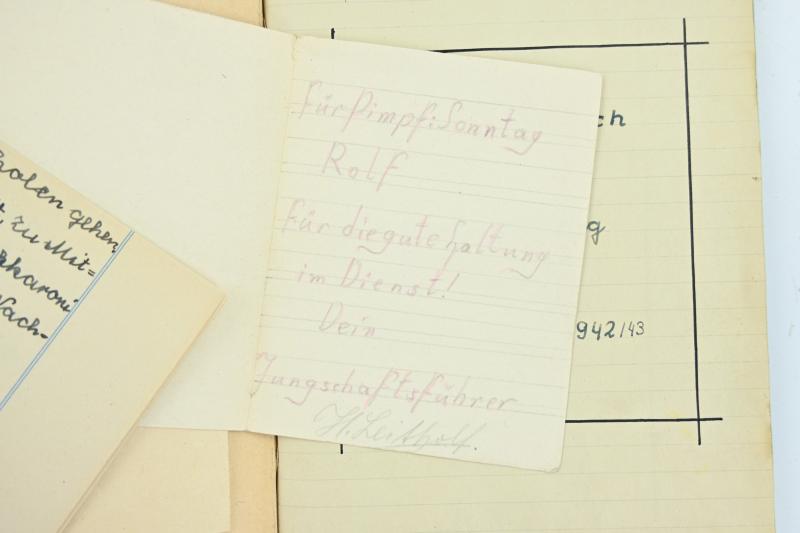 holen gehen
zu Mit-
Makaroni
Nach-
Für Pimpf: Sonntag
Rolf
für die gute Haltung
im Dienst!
Dein
Jungschaftsführer
H. Leitholf.
ch
g
942/43